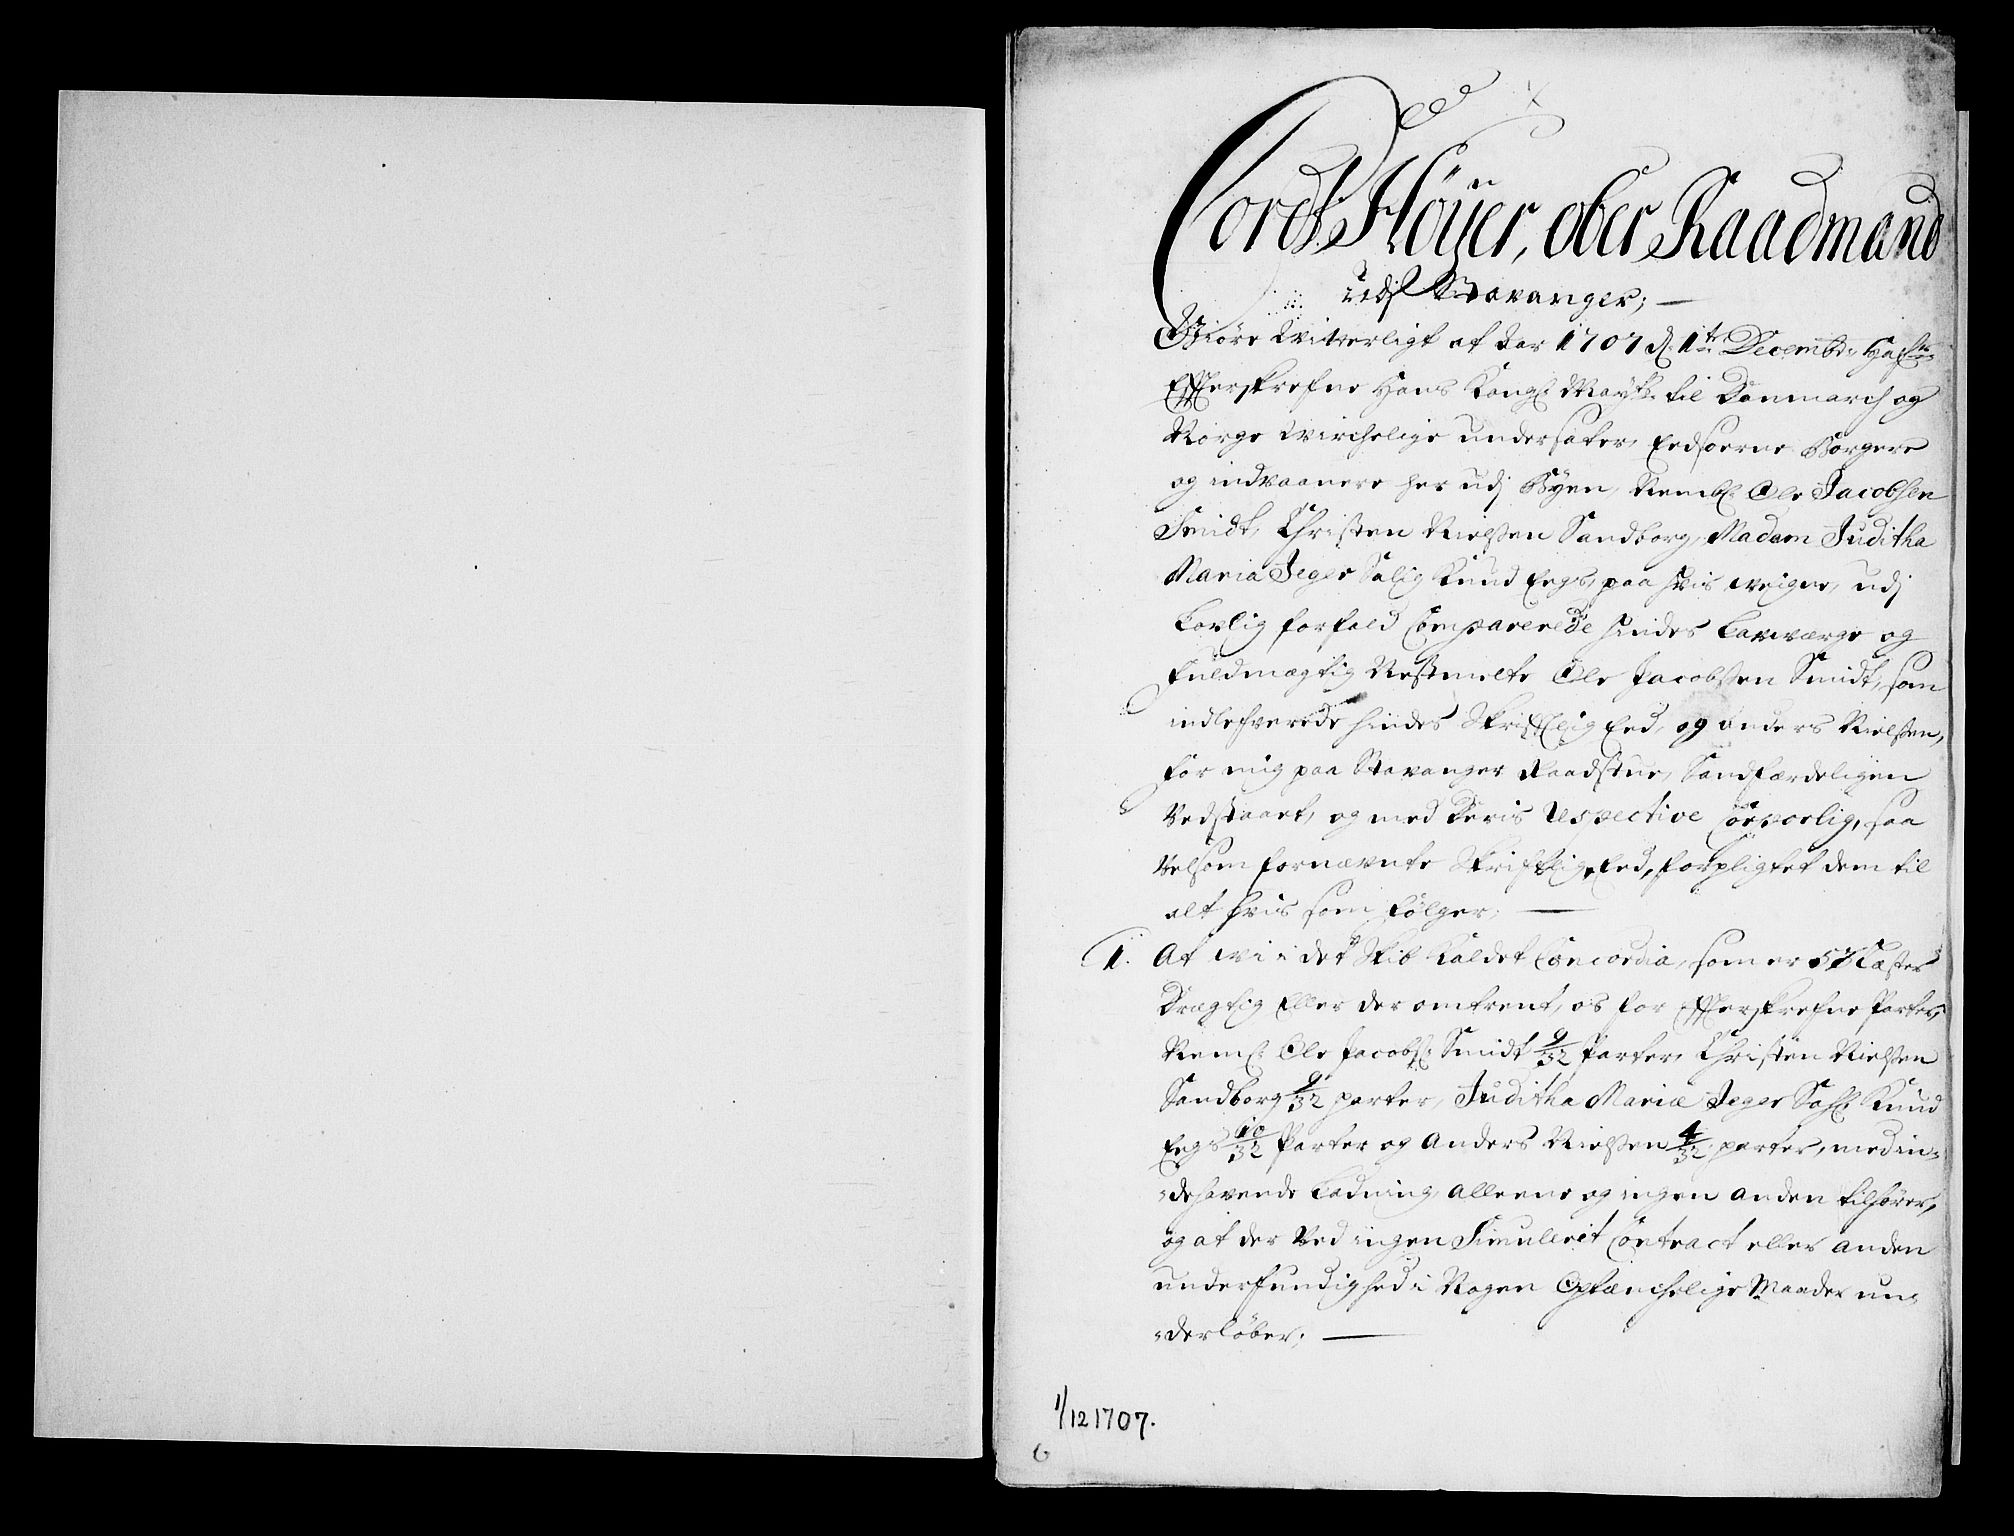 Cordt Höÿer, ober Raadmand
udj Stavanger;
Giöre Witterligt at Aar 1707 d. 1te Decembr: Hafue
Efterskrefne Hans Kongl: Mayts: til Danmarch og
Norge Wirchelige undersåter, Eedsoerne Borgere
og indvaanere her udj Byen, Nembl: Ole Jacobsen
Smidt, Christen Nielssen Sandborg, Madam Juditha
Maria Jeger Salig Knud Eegs, paa hvis weigne, udj
Lovlig forfald Comparerede hindes Lavværge og
fuldmægtig Nestmelte Ole Jacobssen Smidt, som
indlefverede hindes Skrifftlig Eed, og Anders Nielssen,
for mig paa Stavanger Raadstue, Sandfærdeligen
Vedstaaet, og med deris Respective Corporlig, saa
velsom fornævnte Skrifftlig Eed, forpligtet dem til
alt hvis som følger;
1. At wi i det Skib Kaldet Concordia, som er 58 Læster
Drægtig Eller der omtrent, os for Efterskrefne Parter,
Neml: Ole Jacobs: Smidt 9/32 Parter, Christen Nielssen
Sandborg 9/32 parter, Juditha Maria Jeger Sal: Knud
Eegs 10/32 Parter og Anders Nielssen 4/32 parter, med in-
-dehavende Ladning, Alleene og ingen anden tilhører,
og at der Ved ingen Simulerit Contract eller anden
underfundighed i Nogen Optænchelige Maader un-
-derløber;
1/12 1707.